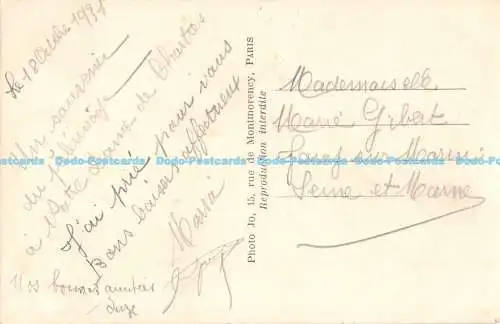 Le 18 Octobre 1931
Un souvenir
du pélérinage
à Notre Dame de
J'ai prié pour vous
Bons baisers affectueux
Maria
Nos bonnes amitiés
Photo Jo, 15, rue de Montmorency, PARIS
Reproduction interdite
Mademoiselle
Marie Gibert
Seine et Marne
Dodo-Postcards Dodo-Postcards Dodo-Postcards Dodo-Postcards Dodo-Postcards Dodo-Postcards